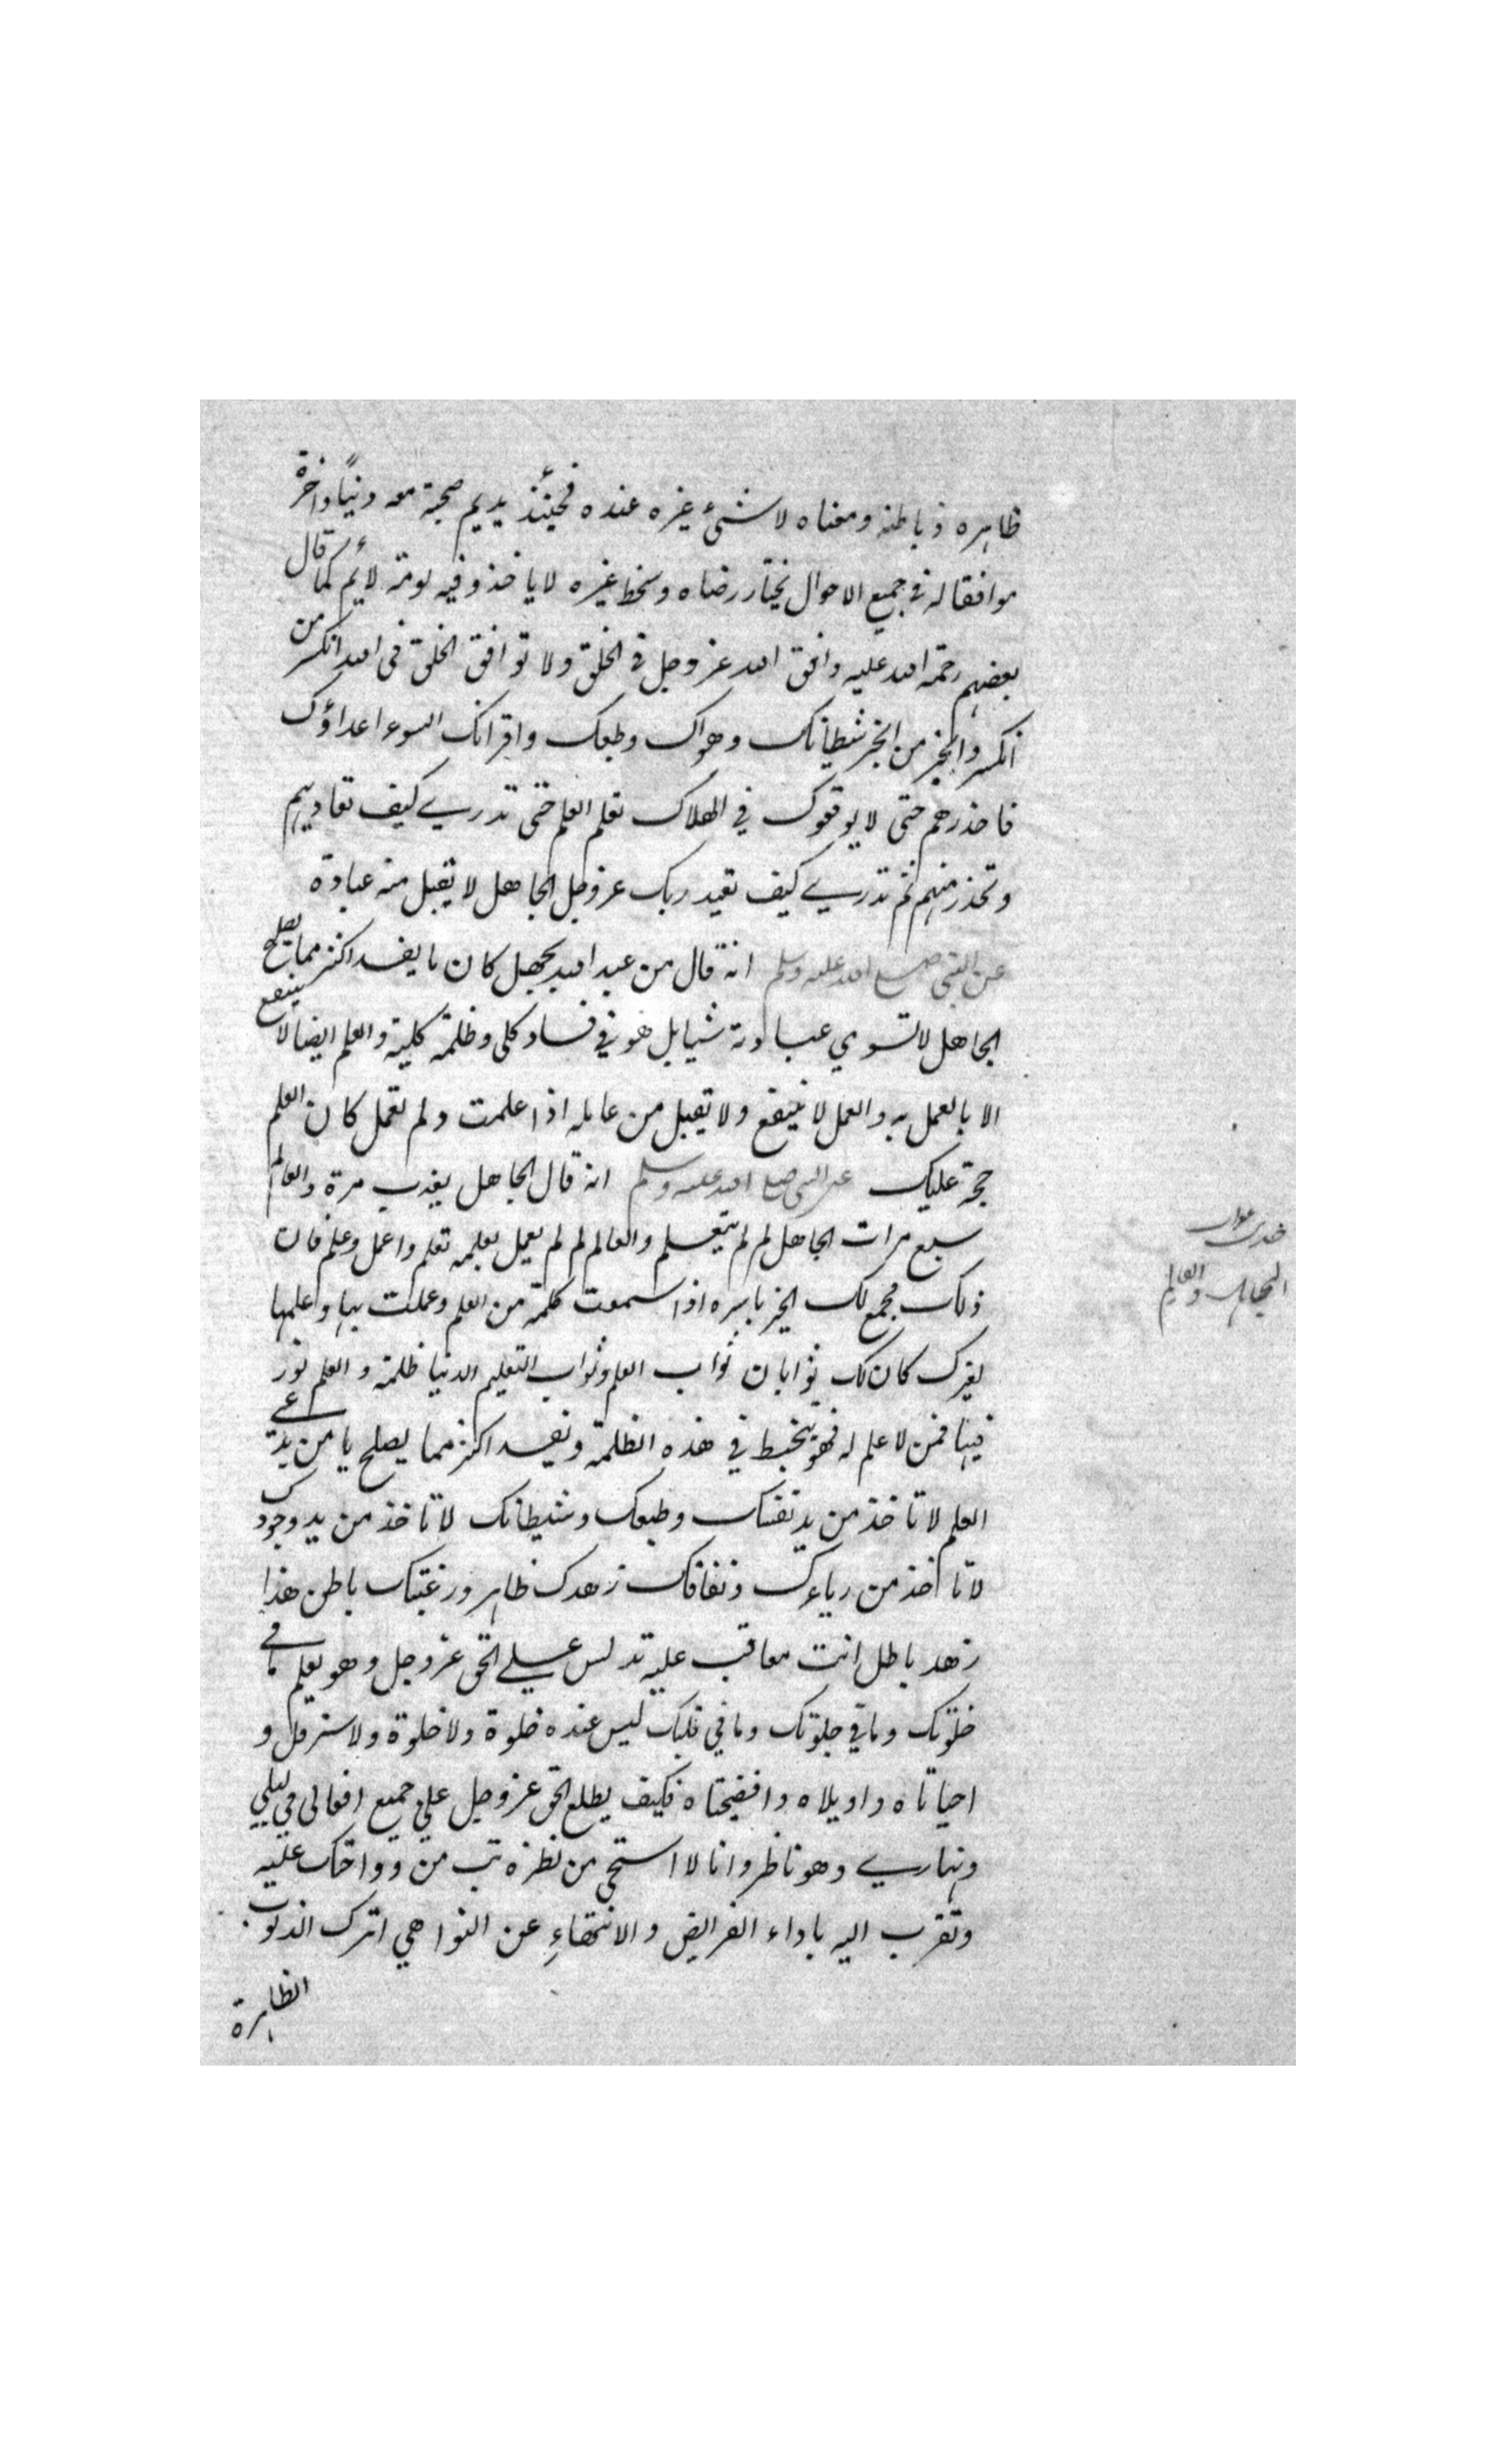 ظاهره وباطنه ومعناه لا شئ غيره عنده فحينئذ يديم صحبته معه دنياً وآخرة
موافقا له في جميع الاحوال يختار رضاه وسخط غيره لا ياخذه فيه لومة لائم كما قال
بعضهم رحمة الله عليه وافق الله عز وجل في الخلق ولا توافق الخلق في الله انكسر من
انكسر وانجبر من انجبر شيطانك وهواك وطبعك واقرانك السوء اعداؤك
فاحذرهم حتى لا يوقعوك في الهلاك تعلم العلم حتى تدري كيف تعاديهم
وتحذر منهم ثم تدري كيف تعبد ربك عز وجل الجاهل لا تقبل منه عبادة
عن النبي صلى الله عليه وسلم انه قال من عبد الله بجهل كان ما يفسد اكثر مما يصلح
الجاهل لا تسوي عبادته شيا بل هو في فساد كلي وظلمة كلية والعلم ايضا لا ينفع
الا بالعمل به والعمل لا ينفع ولا تقبل من عامله اذا علمت ولم تعمل كان العلم
حجة عليك عن النبي صلى الله عليه وسلم انه قال الجاهل يعذب مرة والعالم
سبع مرات الجاهل لم لم يتعلم والعالم لم لم يعمل بعلمه تعلم واعمل وعلم فان
ذلك مجمع لك الخير باسره اذا سمعت كلمة من العلم وعملت بها وعلمتها
لغيرك كان لك ثوابان ثواب العلم وثواب التعليم الدنيا ظلمة والعلم نور
فيها فمن لا علم له فهو يتخبط في هذه الظلمة ويفسد اكثر مما يصلح يا من يدعي
العلم لا تاخذ من يد نفسك وطبعك وشيطانك لا تاخذ من يد وجودك
لا تاخذ من رياءك ونفاقك زهدك ظاهر ورغبتك باطن هذا
زهد باطل انت معاقب عليه تدلس علي الحق عز وجل وهو يعلم ما في
خلوتك وما في جلوتك وما في قلبك ليس عنده خلوة ولا جلوة ولا ستر قل و
احياتاه واويلاه وافضيحتاه فكيف يطلع الحق عز وجل علي جميع افعالي في ليلي
ونهاري وهو ناظر وانا لا استحي من نظره تب من وواحك عليه
وتقرب اليه باداء الفرايض والانتهاء عن النواهي اترك الذنوب
الظاهرة
الجاهل والعالم